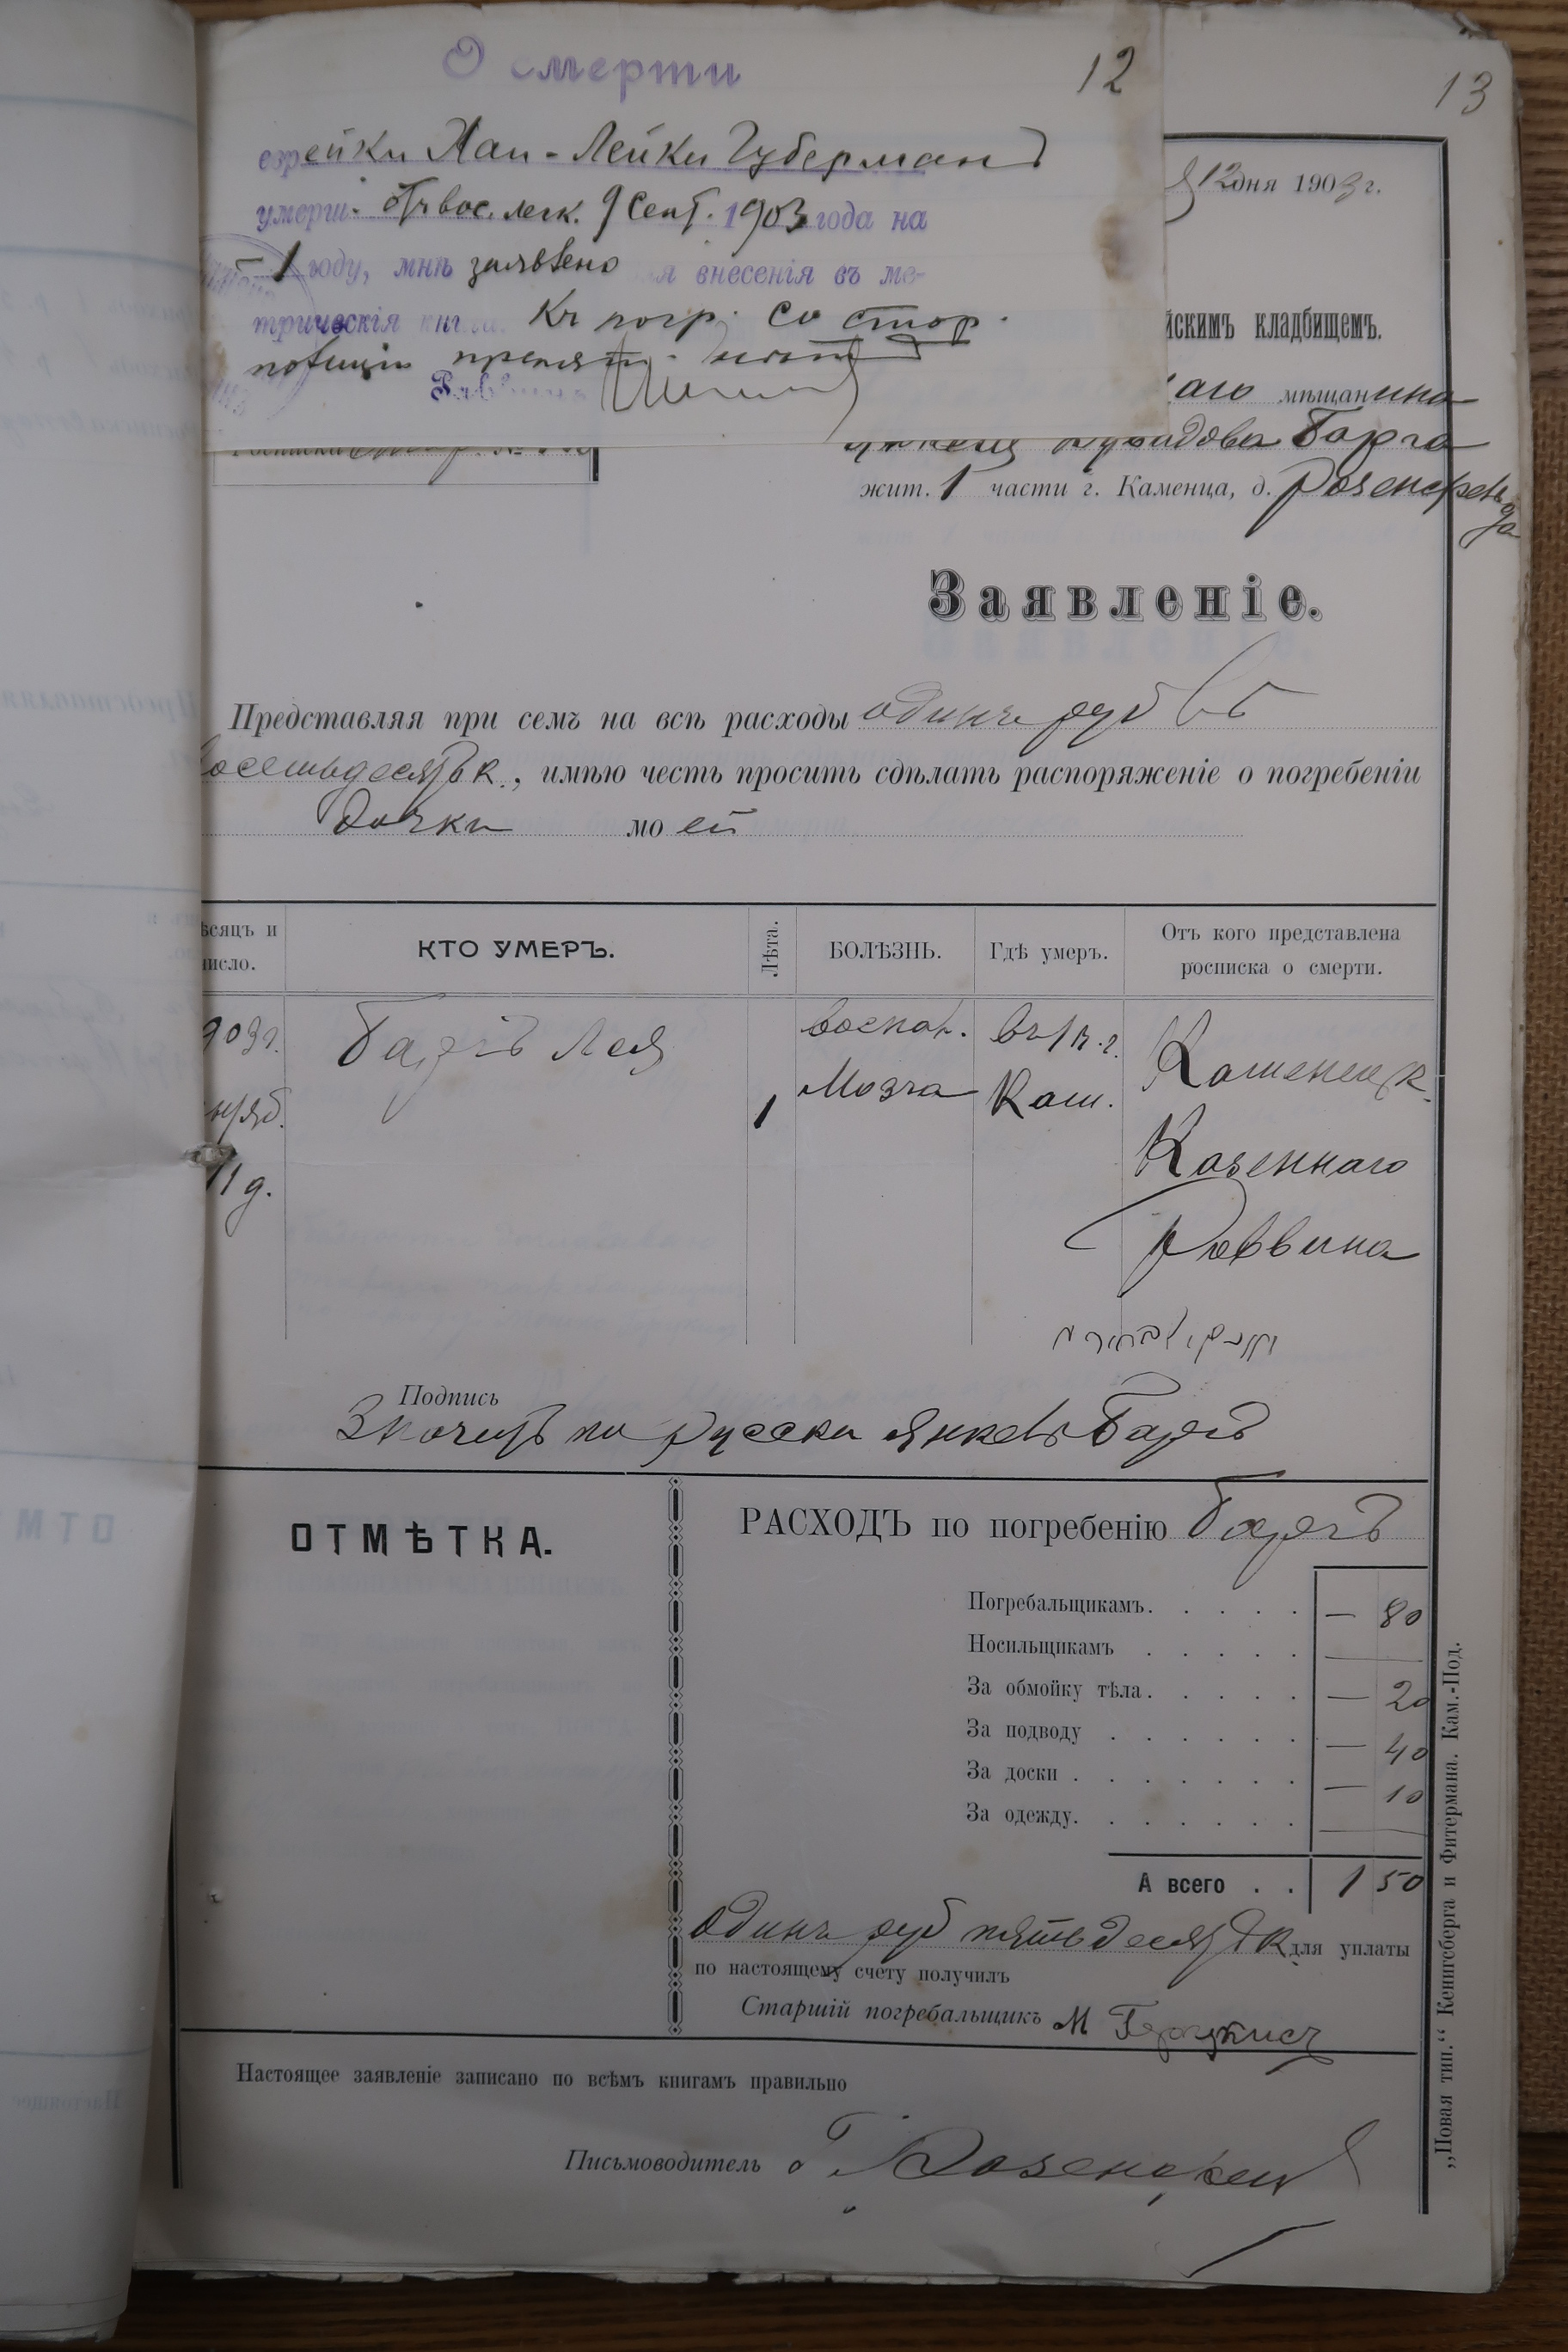 О смерти
12
13
еврейки Хаи-Лейки Губерманъ
умерш. отъ вос. легк. 9 Сент. 1903 года на
1 году, мнѣ заявлено внесенія въ ме-
трическія книги. Къ погр. со стор.
полиціи препят.
Раввинъ
12 дня 1903 г.
йскимъ кладбищемъ.
аго мѣщанина
Давидова Барга
жит. 1 части г. Каменца, д. Розенфельда
Заявленіе.
Представляя при семъ на всѣ расходы одинъ руб
восемьдесятъ к., имѣю честь просить сдѣлать распоряженіе о погребеніи
дочки моей
ѣсяцъ и число.
КТО УМЕРЪ.
Лѣта.
БОЛѢЗНЬ.
Гдѣ умеръ.
Отъ кого представлена росписка о смерти.
903г.
Баргъ Лея
воспал.
въ г.
Каменецк.
1
Мозга
Кам.
Казеннаго
11 д.
Раввина
Подпись
Значитъ по русски Янкель Баргъ
ОТМѢТКА.
РАСХОДЪ по погребенію Баргъ
Погребальщикамъ. . . . . — 80
Носильщикамъ . . . . . —
За обмойку тѣла. . . . . — 20
За подводу . . . . . . — 40
За доски . . . . . . . — 10
За одежду. . . . . . . —
А всего . . 1 50
одинъ руб пятьдесятъ к для уплаты
по настоящему счету получилъ
Старшій погребальщикъ М
Настоящее заявленіе записано по всѣмъ книгамъ правильно
Письмоводитель
„Новая тип.“ Кенигсберга и Фитермана. Кам.-Под.